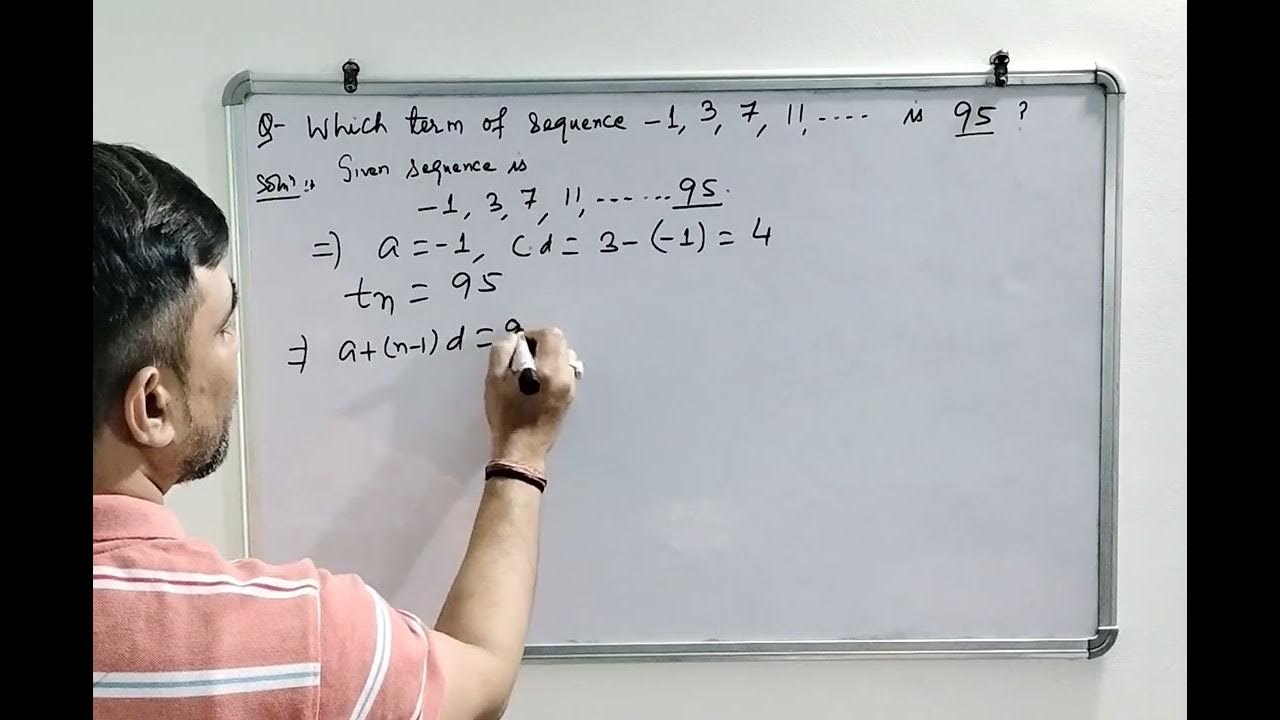 Q- Which term of sequence -1, 3, 7, 11, ---- is 95 ?
Soln:. Given sequence is
-1, 3, 7, 11, ------- 95.
=) a = -1, c.d = 3 - (-1) = 4
tn = 95
=) a + (n-1) d = 9